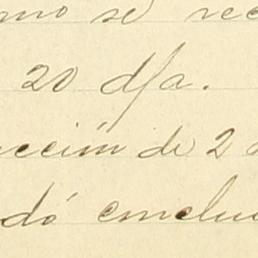 mo se rec
20 d/a.
ección de 2
dó conclu